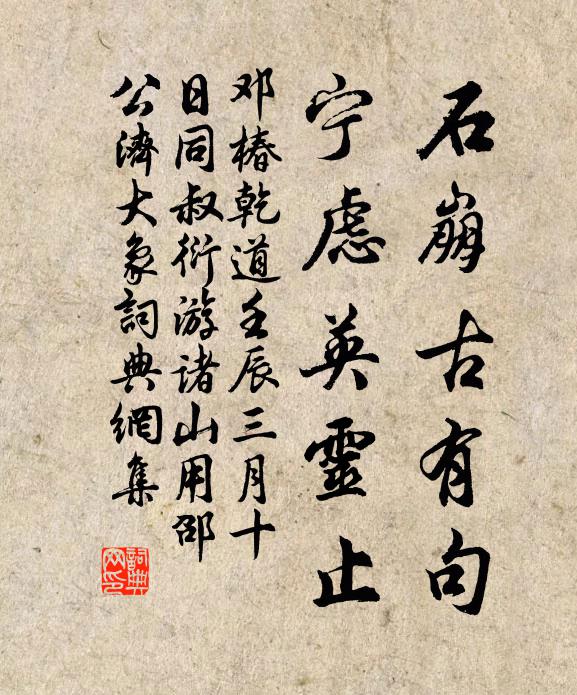 石崩古有句
宁慮英靈止
邓椿乾道壬辰三月十
日同叔衍游诸山用邵
公濟大象詞典網集
詞典网印